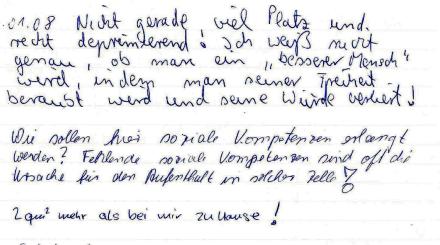 .01.08 Nicht gerade viel Platz und
recht deprimierend! Ich weiß nicht
genau, ob man ein „besserer Mensch"
wird, indem man seiner Freiheit
beraubt wird und seine Würde verliert!
Wie sollen hier soziale Kompetenzen erlangt
werden? Fehlende soziale Kompetenzen sind oft die
Ursache für den Aufenthalt in solcher Zelle!
2 qm² mehr als bei mir zu Hause!